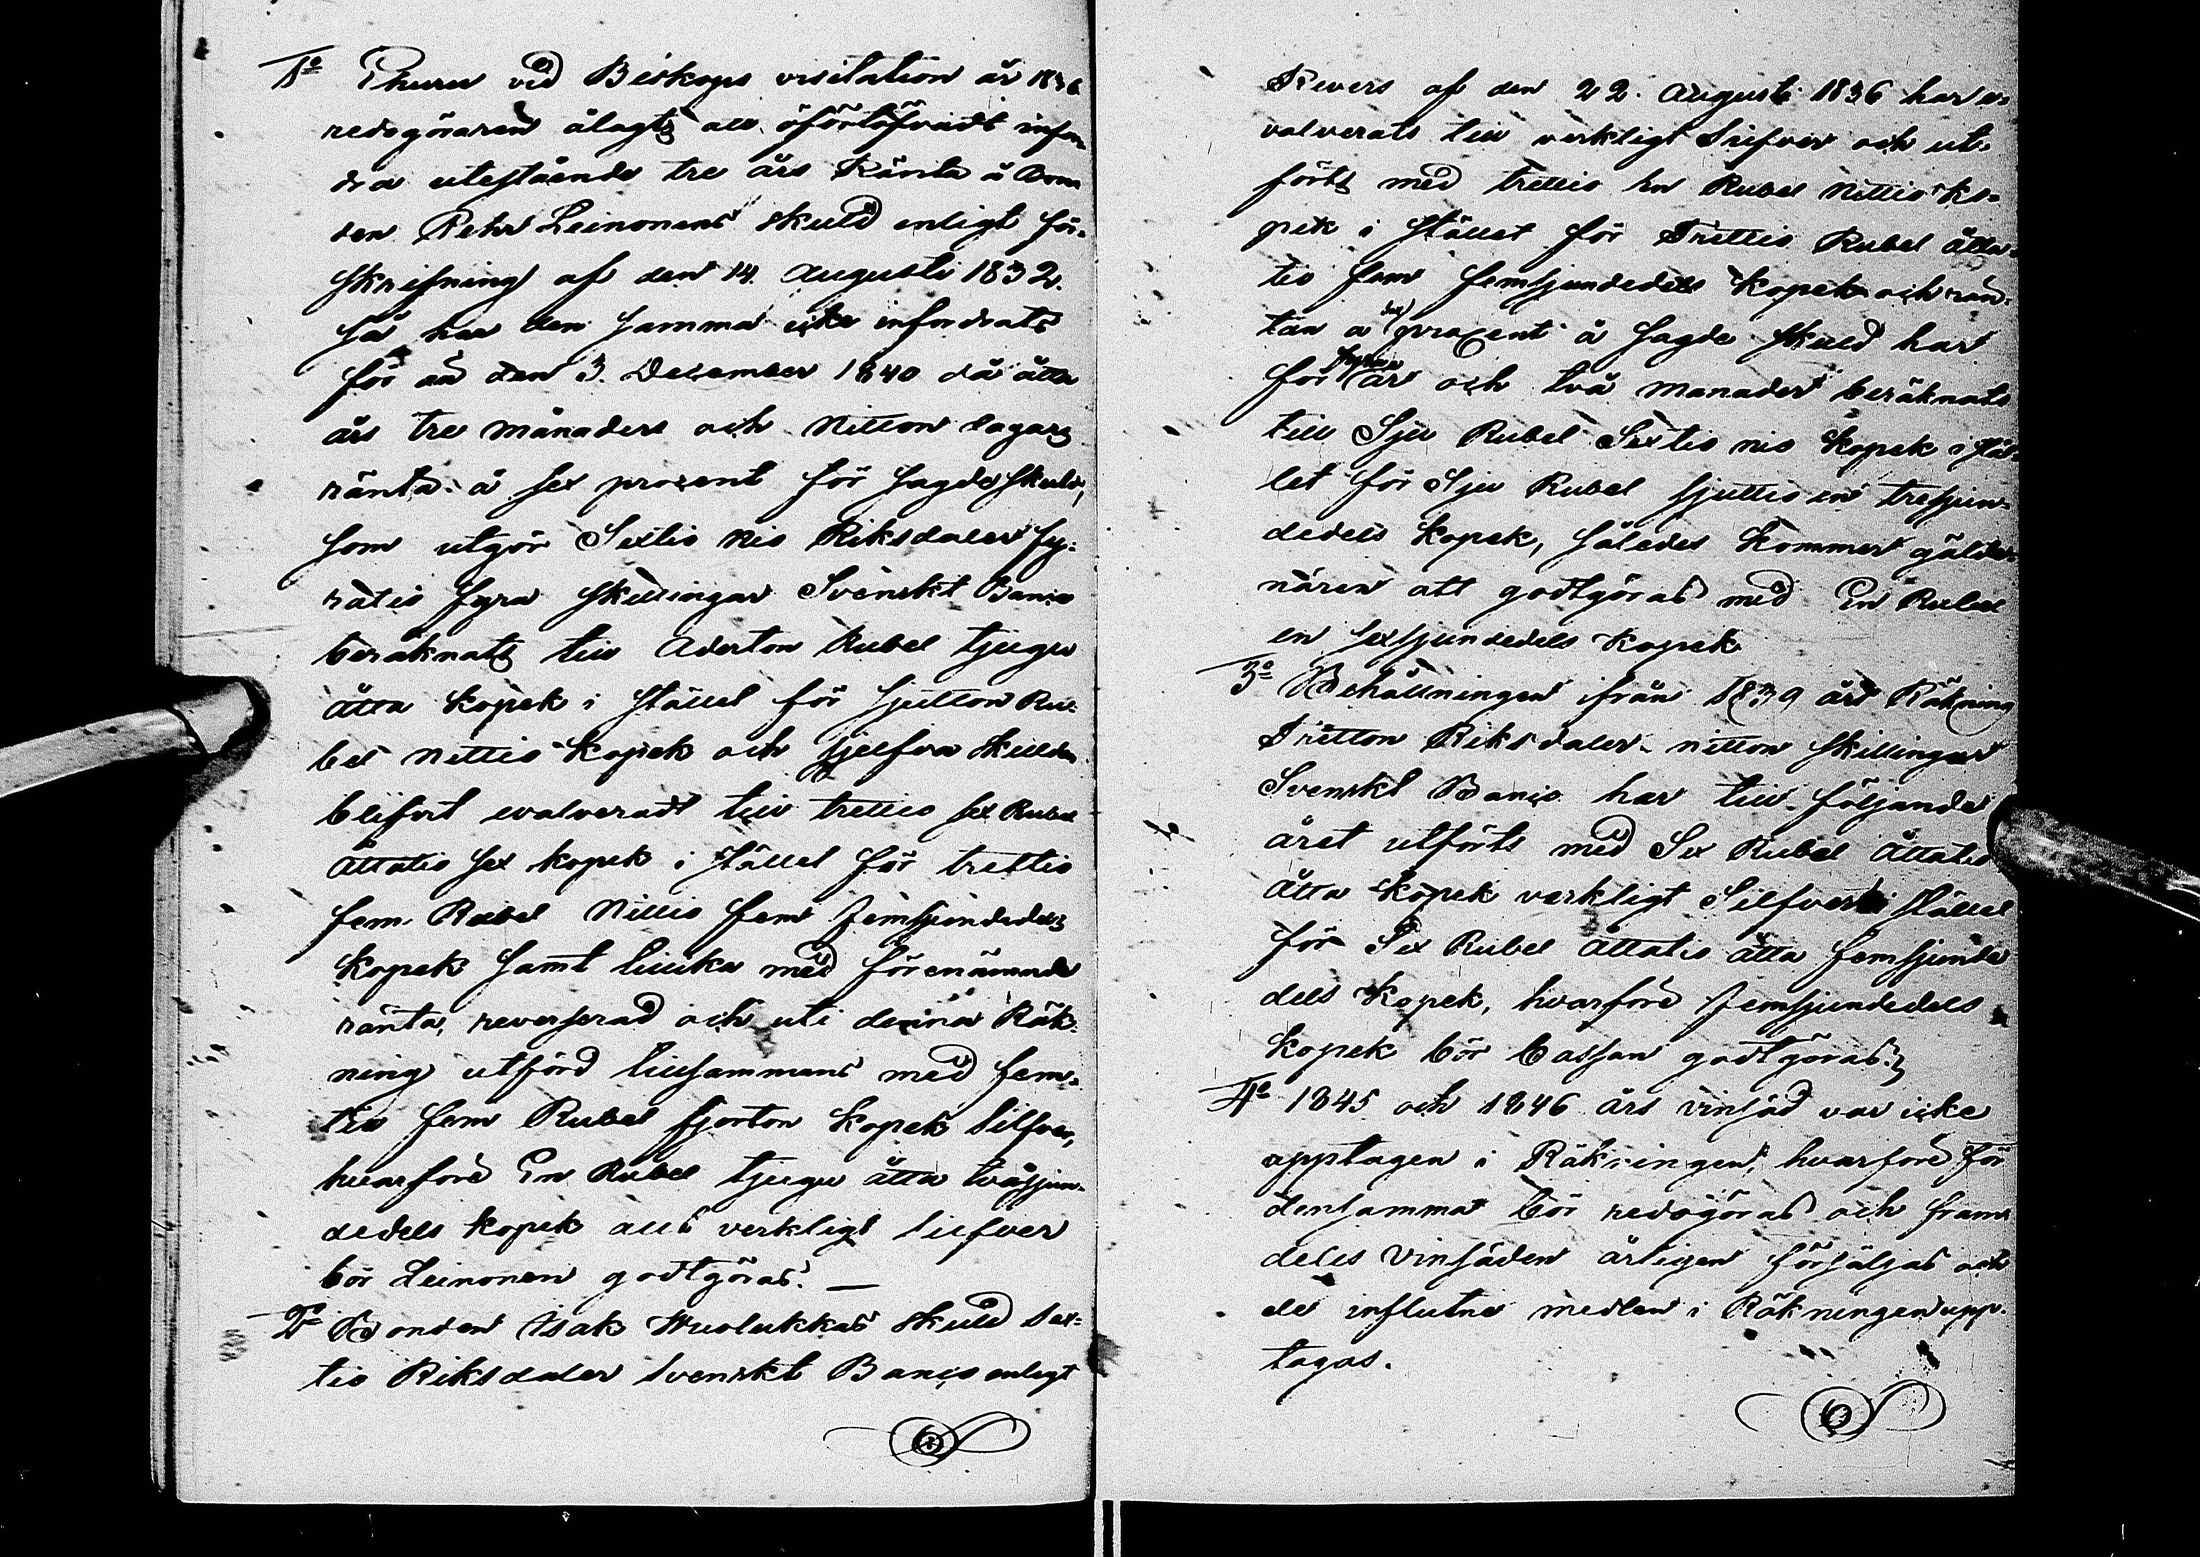 1o Ehuru vid Biskops visitation år 1836
redogöraren ålagts att oförtöfvadt infor
dra utestående tre års Ränta å Bon
den Petter Leinonens skuld enligt för-
skrifning af den 14. Augusti 1832.
så har den samma icke infordrats
för än den 3. December 1840 då åtta
års tre månaders och Nitton dagars
ränta à sex procent för sagde skuld,
som utgör Sextio nio Riksdaler fy-
ratio fyra skillingar Svenskt Banco
beräknats till Aderton Rubel tjugu
åtta kopek i stället för sjutton Ru-
bel nittio kopek och sjelfva skulden
blifvit evalveradt till trettio sex Rubel
åttatio sex kopek i stället för trettio
fem Rubel Nittio fem femsjundedels
kopek samt tillika med förenämnde
ränta, reverserad och uti denna Räk-
ning utförd tillsammans med fem-
tio fem Rubel fjorton kopek silfver,
hvarföre En Rubel tjugu åtta tvåsjun-
dedels kopek allt verkligt silfver
bör Leinonen godtgöras. —
2o Bonden Isak Huolukkas skuld sex-
tio Riksdaler Svenskt Banco enligt
Revers af den 22. Augusti 1836 har e-
valverats till verkligt Silfver och ut-
förts med trettio en Rubel Nittio ko-
pek i stället för Trettio Rubel åtta-
tio fem femsjundedels kopek och rän-
tan a sex procent å sagde skuld har
för fyra år och två månader beräknats
till Sju Rubel Sextio nio kopek i stäl-
let för Sju Rubel sjuttio en tresjun-
dedels kopek, således kommer gälde-
nären att godtgöras med En Rubel
en sexsjundedels kopek
3o Behållningen ifrån 1839 års Räkning
Tretton Riksdaler nitton skillingar
Svenskt Banco har till följande
året utförts med Sex Rubel Åttatio
åtta kopek verkligt Silfver i stället
för Sex Rubel åttatio åtta femsjunde
dels kopek, hvarföre femsjundedels
kopek bör Cassan godtgöras.
4o 1845 och 1846 års vinsäd var icke
upptagen i Räkningen, hvarföre för
densamma bör redogöras och fram
deles Vinsäden årligen försäljas och
de influtne medlen i Räkningen upp-
tagas.